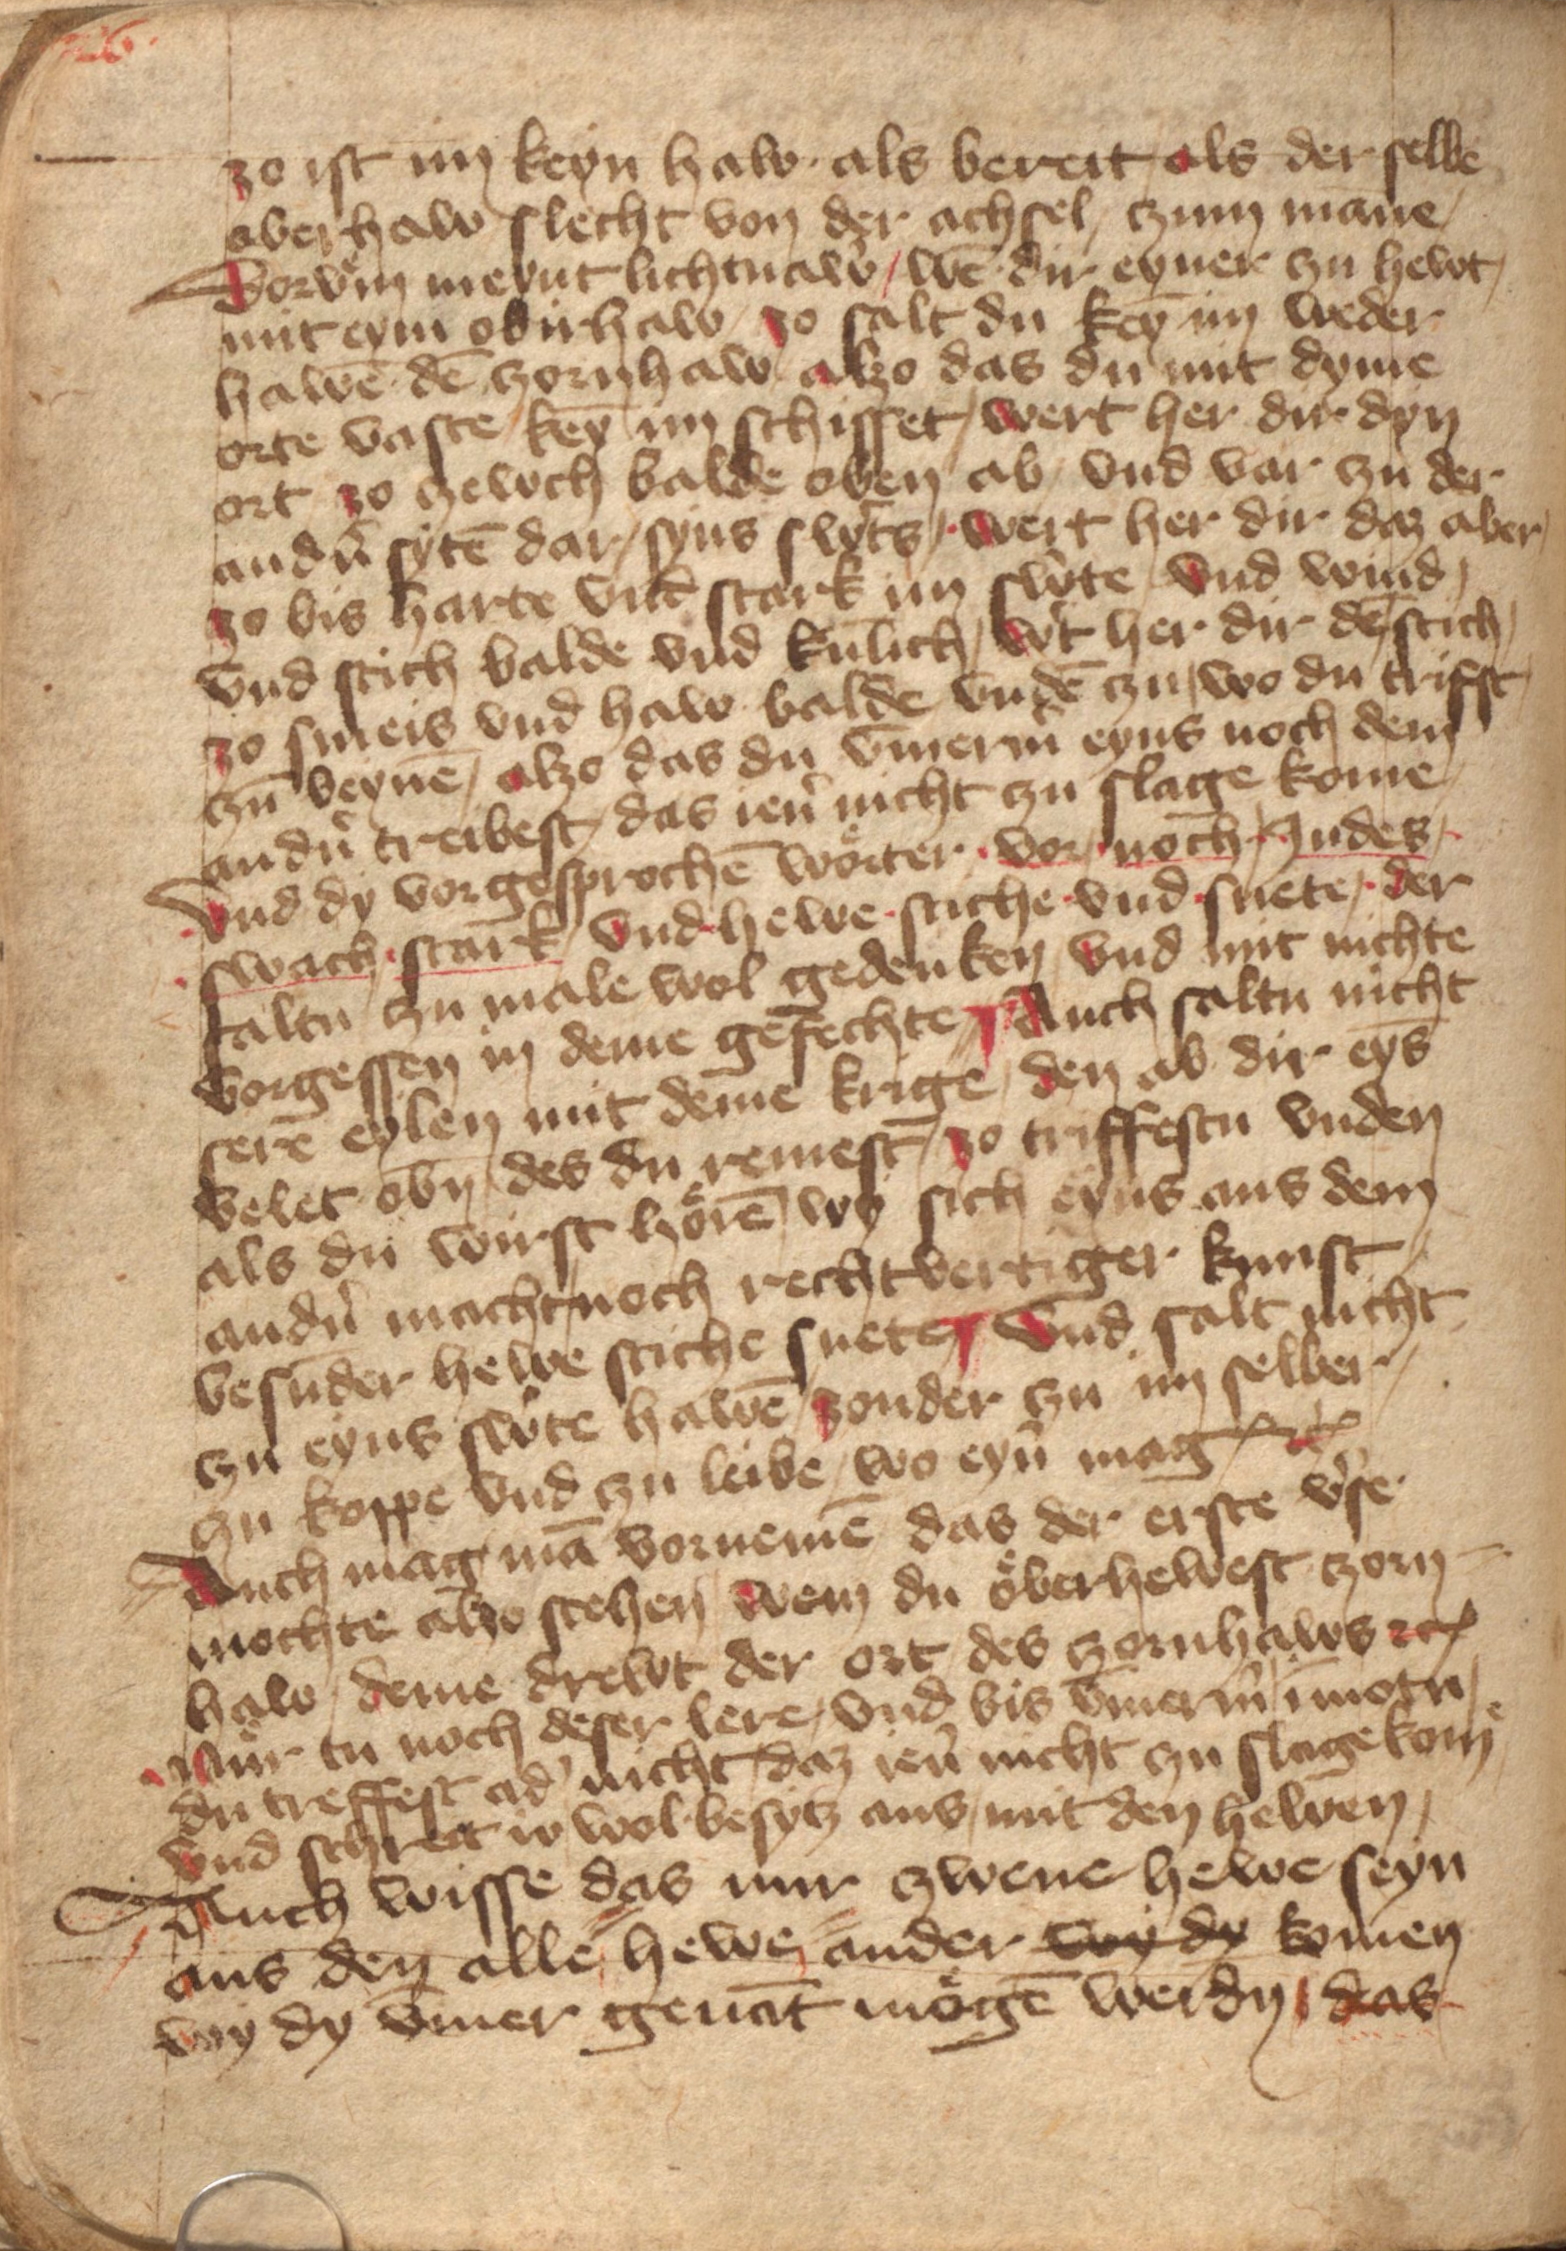 26
zo ist im keyn haw als bereit als der selbe
oberhaw slecht von der achsel / czum manne /
Dorvm̄ meynt lichtnaw̄ / wē dir eyner czu hewt /
mit eym obirhaw / zo salt du keȳ im weder
hawē dē zornhaw / alzo das du mit dyme
orte vaste keȳ im schisset / wert her dir dyn
ort / zo czewch balde oben ab / vnd var czu der
andn̄ sytē dar / syns sw̄ts / wert her dir daz aber /
zo bis harte vnd stark im sw̄te / vnd wind /
vnd stich balde vnd kūlich / w̄t her dir dē stich /
zo smeis vnd haw balde vndē czu / wo du trifft
czū beynē / alzo das du ūmerm̄ eyns noch dem
andn̄ treibest / das ien̄ nicht czu slage kome
Vnd dy vorgesprochē wörter · vor / noch / Indes /
swach · stark / vnd hewe · stiche · vnd · snete / der
saltu czu male wol gedenken / vnd mit nichte
vorgessen in deme gefechte / Auch saltu nicht
serē eylen mit deme krige / den ab dir eȳs
velet obn̄ / des du remest / zo triffestu vnden
als du wirst hörē / wy sich eyns aus dem
andn̄ macht / noch rechtvertiger kunst /
besūder hewe stiche snete / Vnd salt nicht
czu eyns sw̄te hawē / zonder czu im selber /
czu koppe vnd czu leibe / wo eyn̄ mag / etc̄
Auch mag mā vornemē das der erste v̄se
mochte alzo stehen / wem du öberhewest zorn
haw / deme drewt der ort des zornhaws etc̄
Nür tu noch deser lere / vnd bis ūmerm̄ ī motu /
du treffest ad' nicht / daz ien̄ nicht czu slage kome
vnd schreit io wol besytz aus / mit den hewen /
Auch wisse das nur czwene hewe seyn
aus den alle hewe ander wy dy komen
wy dy ūmer genāt mögē werdn̄ / das